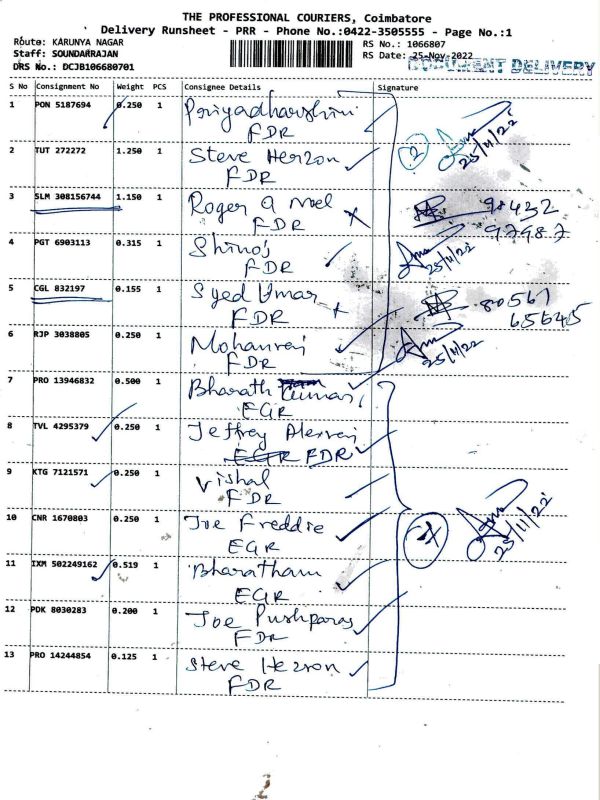 THE PROFESSIONAL COURIERS, Coimbatore
Delivery Runsheet - PRR - Phone No.:0422-3505555 - Page No.:1
Route: KARUNYA NAGAR RS No.: 1066807
Staff: SOUNDARRAJAN RS Date: 25-Nov-2022
DRS No.: DCJB106680701 DOCUMENT DELIVERY
S No Consignment No Weight PCS Consignee Details Signature
1 PON 5187694 0.250 1 Priyadharshini
FDR 2 25/11/22
2 TUT 272272 1.250 1 Steve Herzon
FDR
3 SLM 308156744 1.150 1 Roger G Noel 98432
FDR 97987
4 PGT 6903113 0.315 1 Shinoj
FDR 25/11/22
5 CGL 832197 0.155 1 Syed Umar 80561
FDR 65645
6 RJP 3038805 0.250 1 Mohanraj
FDR 25/11/22
7 PRO 13946832 0.500 1 Bharath Kumar
EGR
8 TVL 4295379 0.250 1 Jeffrey
EGR FDR
9 KTG 7121571 0.250 1 Vishal
FDR
10 CNR 1670803 0.250 1 Joe Freddie 25/11/22
EGR
11 IXM 502249162 0.519 1 Bharatham
EGR
12 PDK 8030283 0.200 1 Joe Pushparaj
FDR
13 PRO 14244854 0.125 1 Steve Hezron
FDR